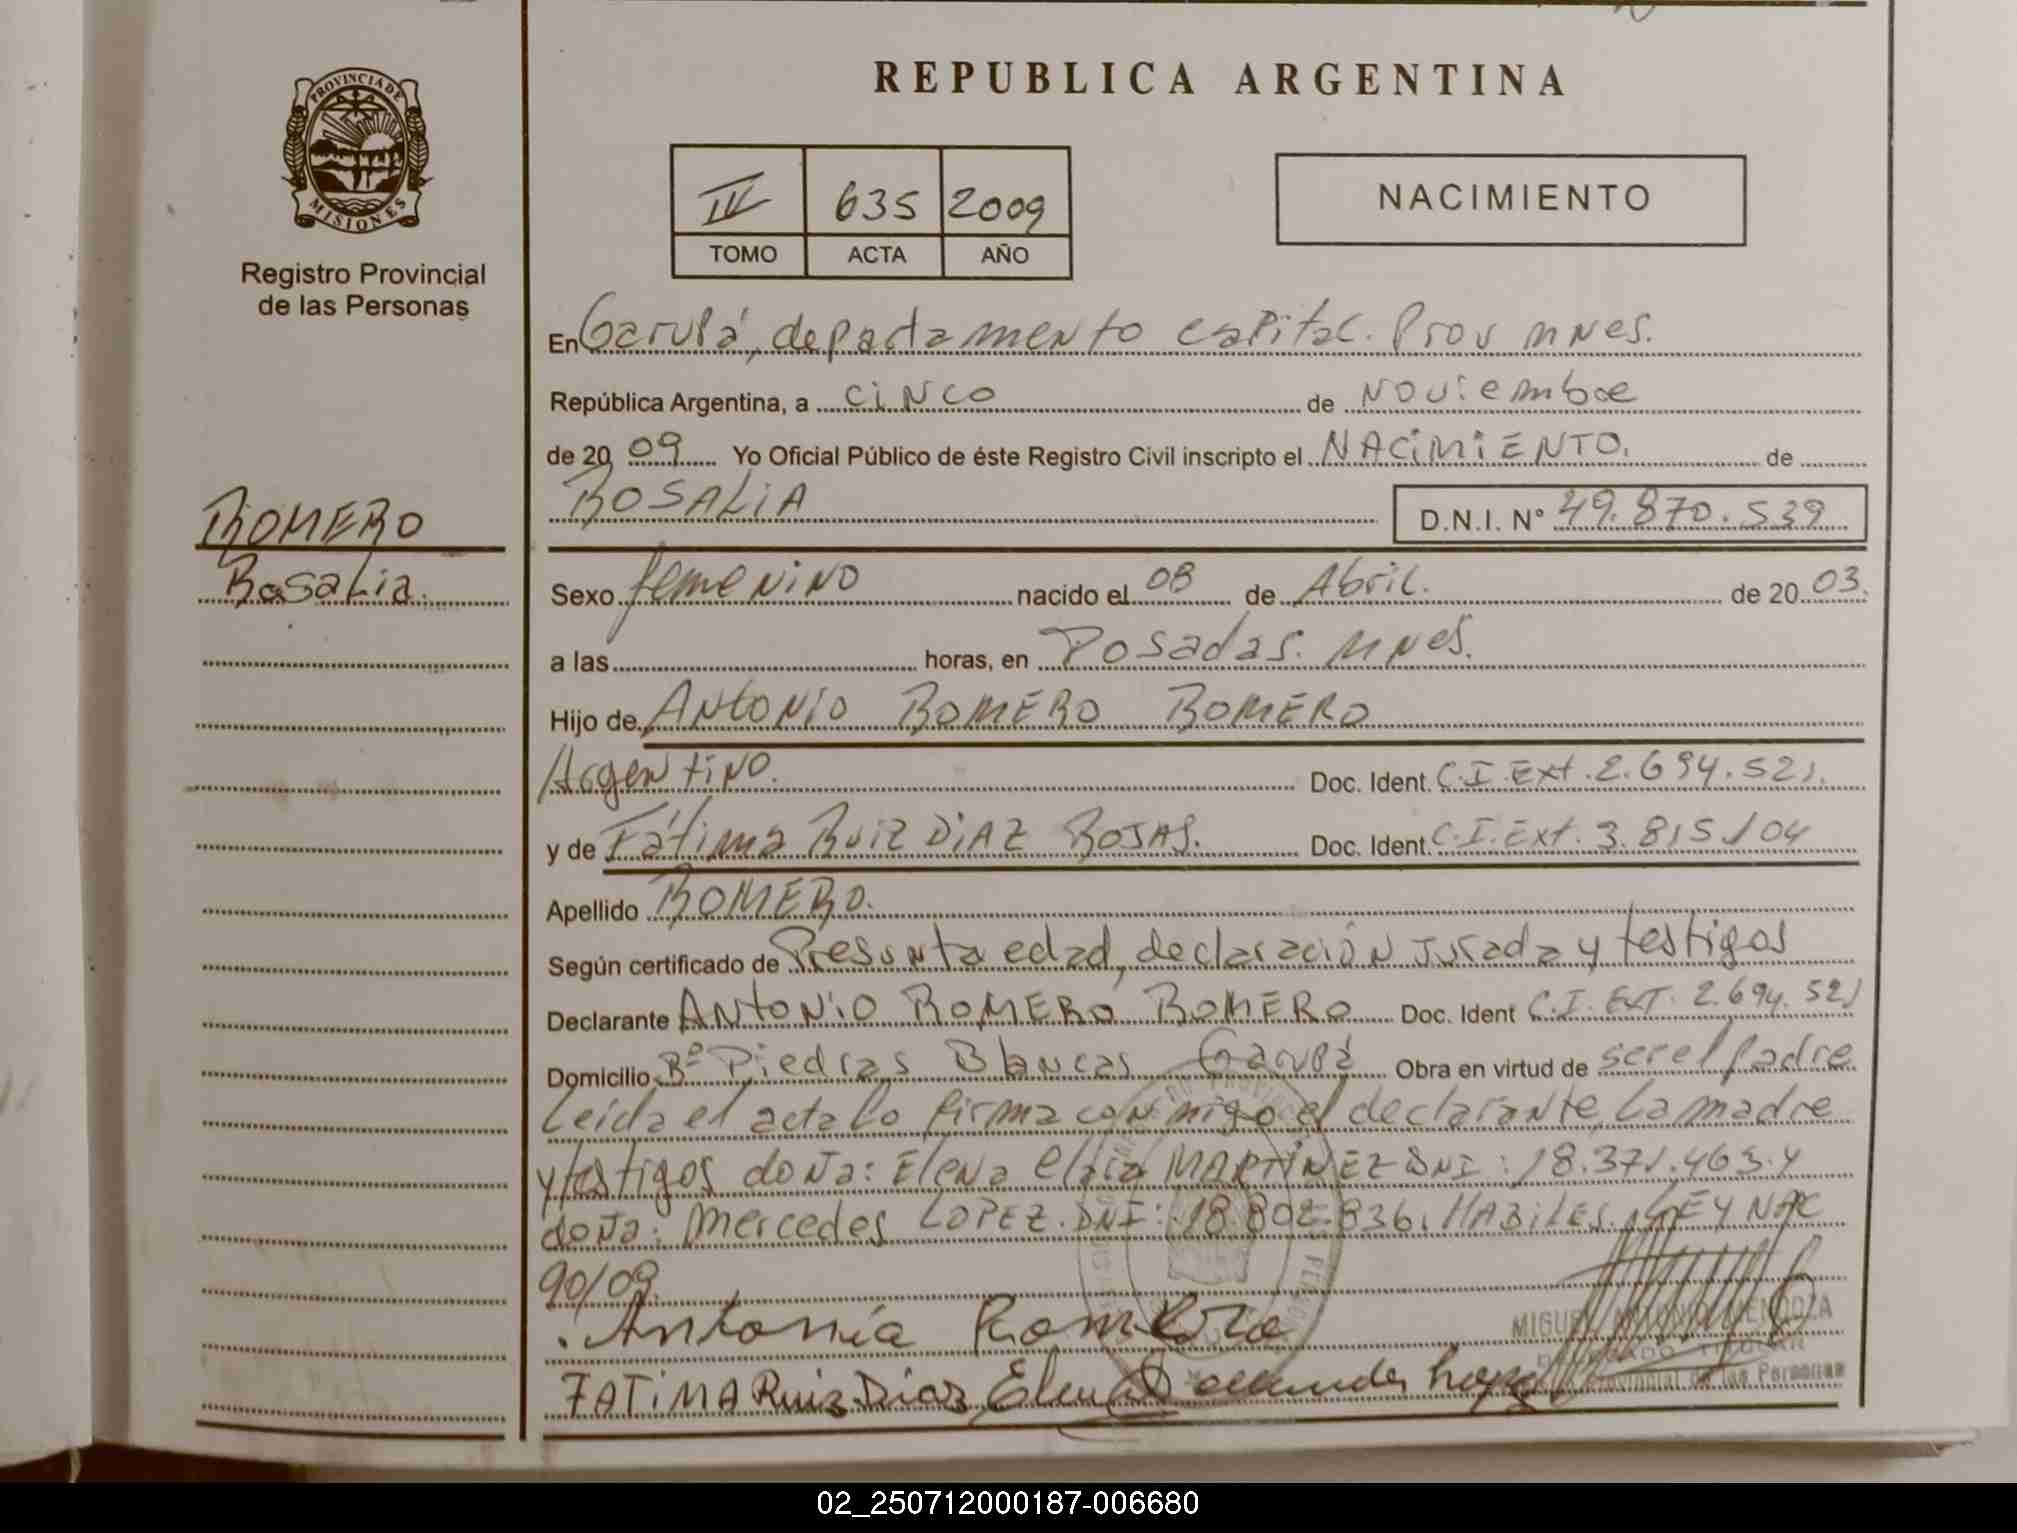 REPUBLICA ARGENTINA
PROVINCIA DE
MISIONES
Registro Provincial
de las Personas
IV 635 2009
TOMO ACTA AÑO
NACIMIENTO
En Garupá, departamento capital. Prov mnes.
República Argentina, a cinco de Noviembre
de 2009 Yo Oficial Público de éste Registro Civil inscripto el NACIMIENTO. de
ROSALIA D.N.I. N° 49.870.539
ROMERO
Rosalia.
Sexo femenino nacido el 08 de Abril. de 2003.
a las horas, en Posadas. mnes.
Hijo de Antonio ROMERO ROMERO
Argentino. Doc. Ident. C.I.Ext. 2.694.521.
y de Fátima RUIZ DIAZ ROJAS. Doc. Ident. C.I.Ext. 3.815104
Apellido ROMERO.
Según certificado de Presunta edad, declaración jurada y testigos
Declarante Antonio ROMERO ROMERO Doc. Ident C.I. EXT. 2.694.521
Domicilio Bº Piedras Blancas Garupá Obra en virtud de ser el padre
Leida el acta lo firma conmigo el declarante, la madre
y testigos doña: Elena MARTINEZ DNI: 18.371.463. y
doña: Mercedes LOPEZ. DNI: 18.802.836. HABILES. LEY NAC
90/09.
Antonia Romero
MIGUEL MENDOZA
TITULAR
FATIMA Ruiz Diaz Elena lopez
Provincial de las Personas
02_250712000187-006680